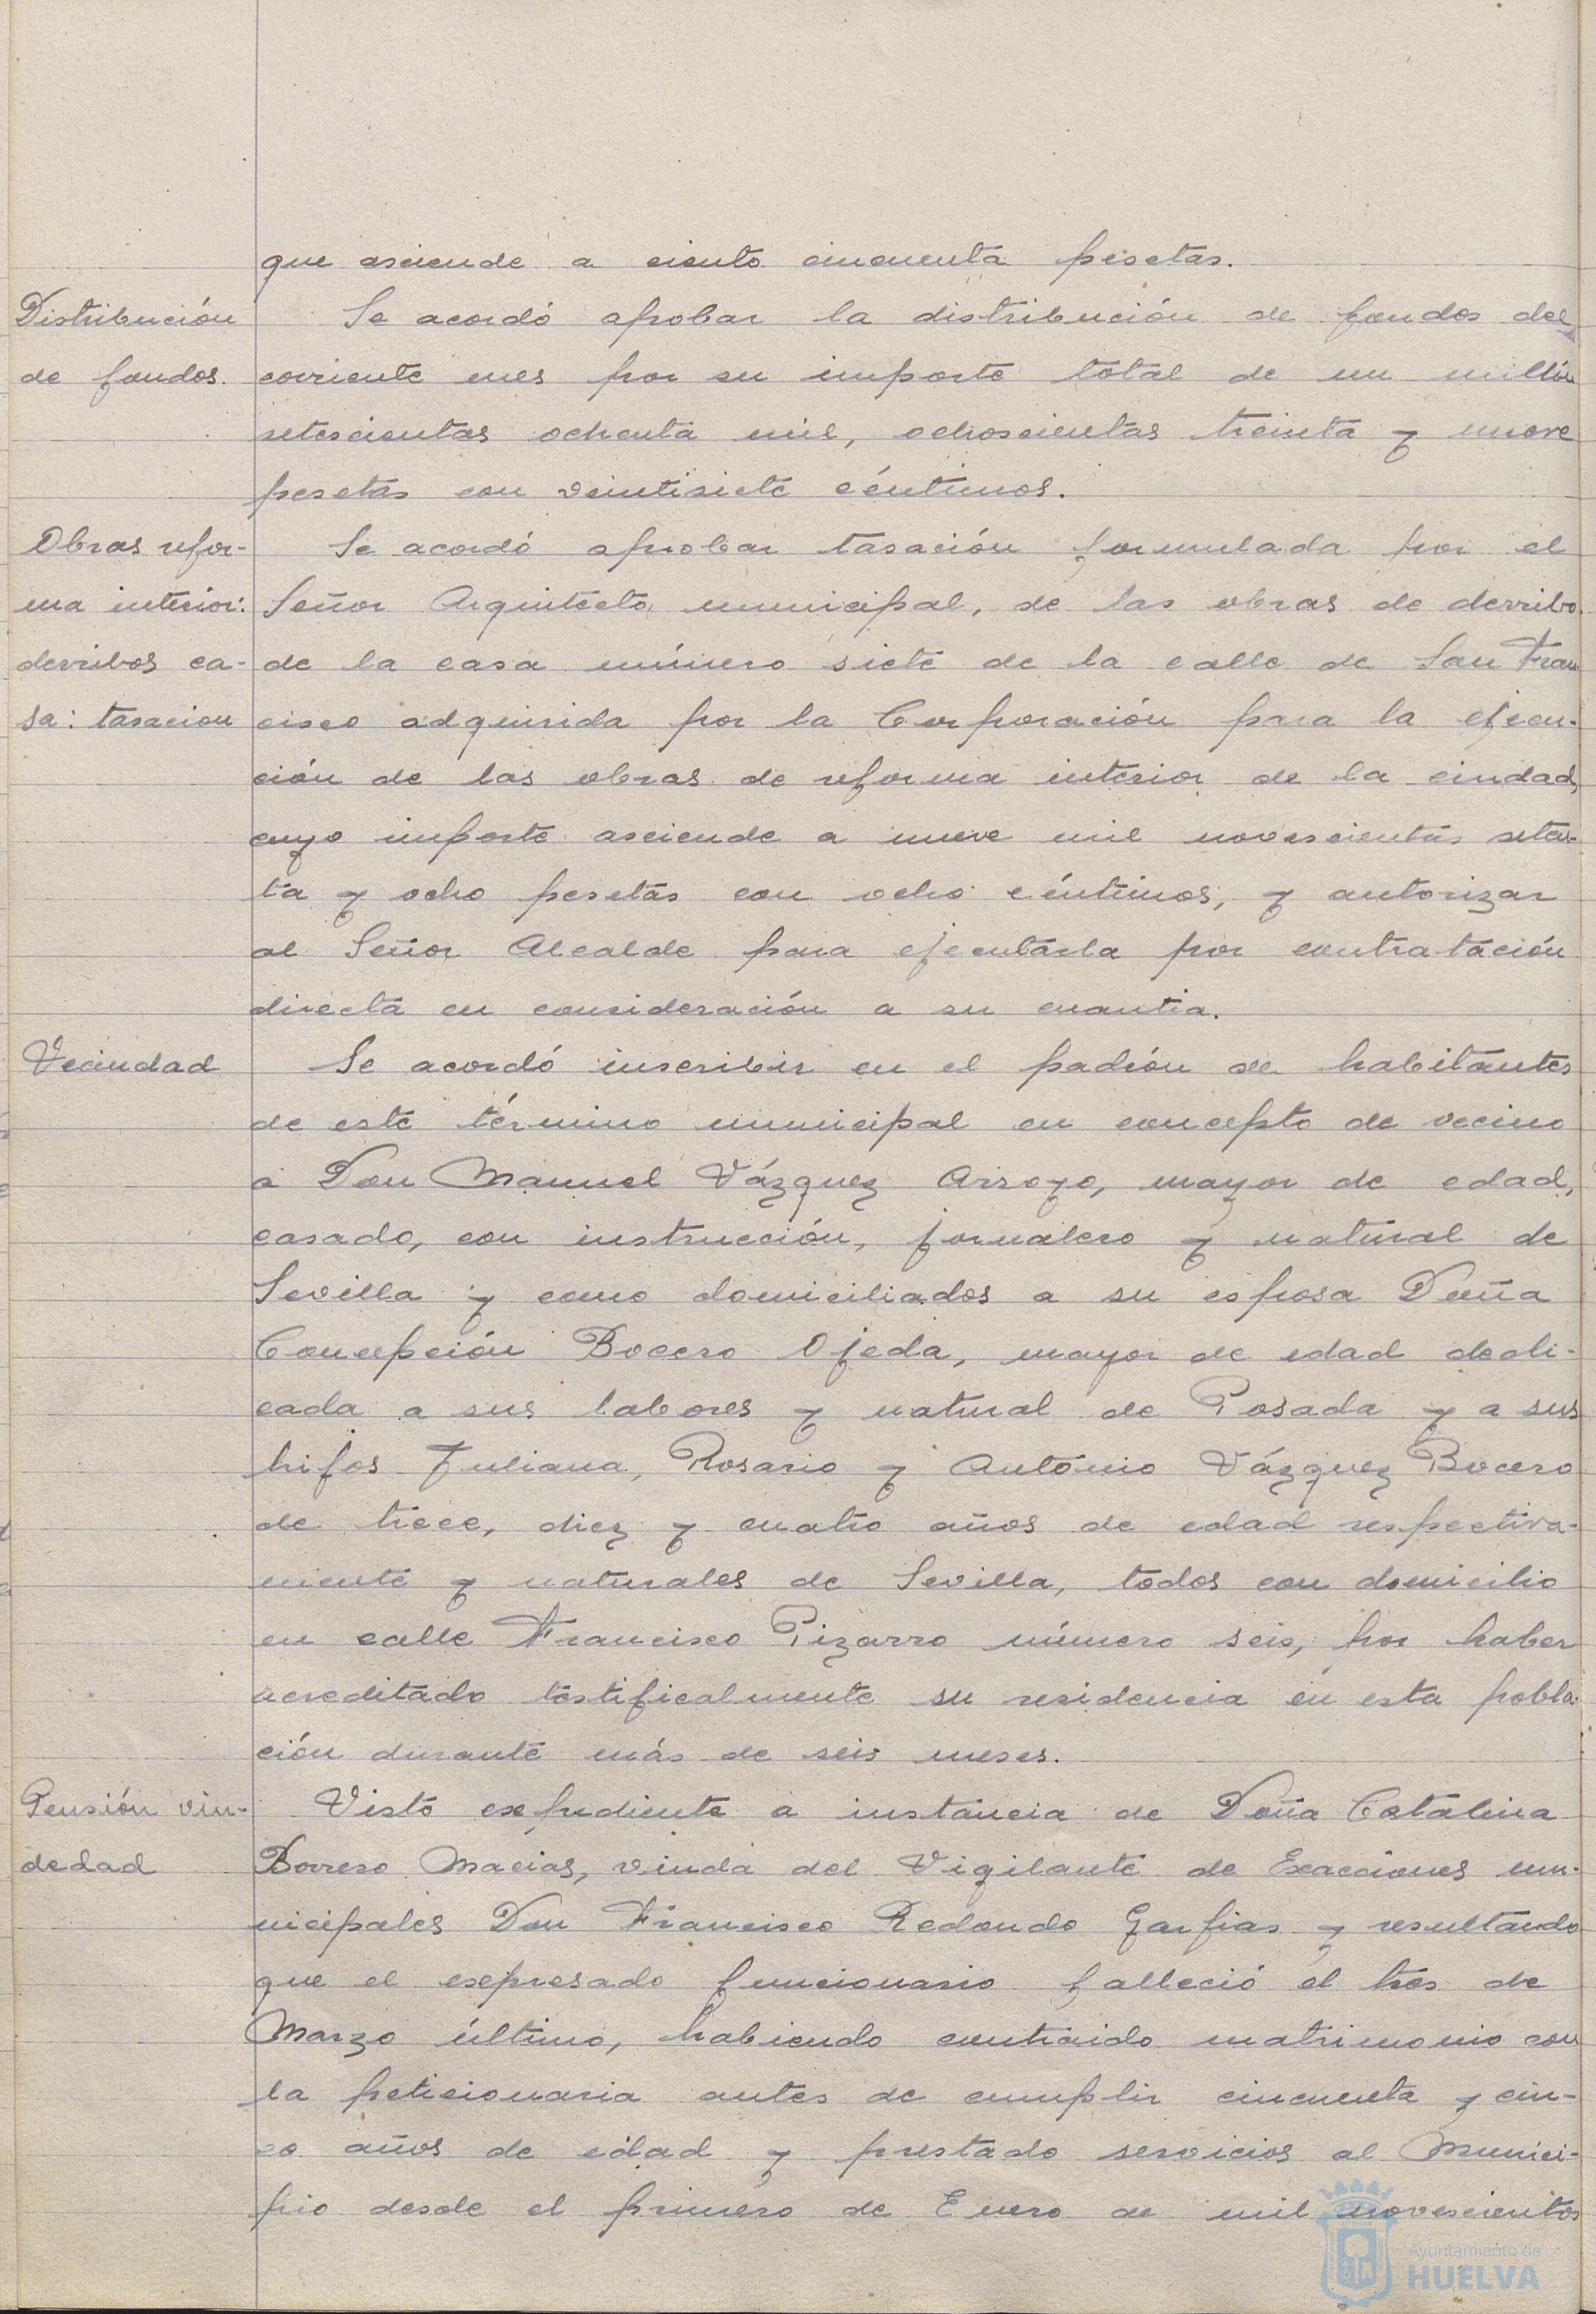 que asciende a ciento cincuenta pesetas.
Distribución
de fondos.
Se acordó aprobar la distribución de fondos del
corriente mes por su importe total de un millón
setescientas ochenta mil, ochoscientas treinta y nueve
pesetas con veintisiete céntimos.
Obras refor-
ma interior:
derribos ca-
sa: tasacion
Se acordó aprobar tasación formulada por el
Señor Arquitecto municipal, de las obras de derribo
de la casa número siete de la calle de San Fran
cisco adquirida por la Corporación para la ejecu-
ción de las obras de reforma interior de la ciudad,
cuyo importe asciende a nueve mil novescientas seten-
ta y ocho pesetas con ocho céntimos, y autorizar
al Señor Alcalde para ejecutarla por contratación
directa en consideración a su cuantia.
Vecindad
Se acordó inscribir en el padrón de habitantes
de este término municipal en concepto de vecino
a Don Manuel Vázquez Arroyo, mayor de edad,
casado, con instrucción, jornalero y natural de
Sevilla y como domiciliados a su esposa Doña
Concepción Bocero Ojeda, mayor de edad dedi-
cada a sus labores y natural de Posada y a sus
hijos Juliana, Rosario y António Vázquez Bocero
de trece, diez y cuatro años de edad respectiva-
mente y naturales de Sevilla, todos con domicilio
en calle Francisco Pizarro número seis, por haber
acreditado testificalmente su residencia en esta pobla-
ción durante más de seis meses.
Pensión viu-
dedad
Visto expediente a instancia de Doña Catalina
Borrero Macías, viuda del Vigilante de Exacciones mu-
nicipales Don Francisco Redondo Garfias y resultando
que el expresado funcionario falleció el tres de
Marzo último, habiendo contraido matrimonio con
la peticionaria antes de cumplir cincuenta y cin-
co años de edad y prestado servicios al Munici-
pio desde el primero de Enero de mil novescientos
Ayuntamiento de
HUELVA